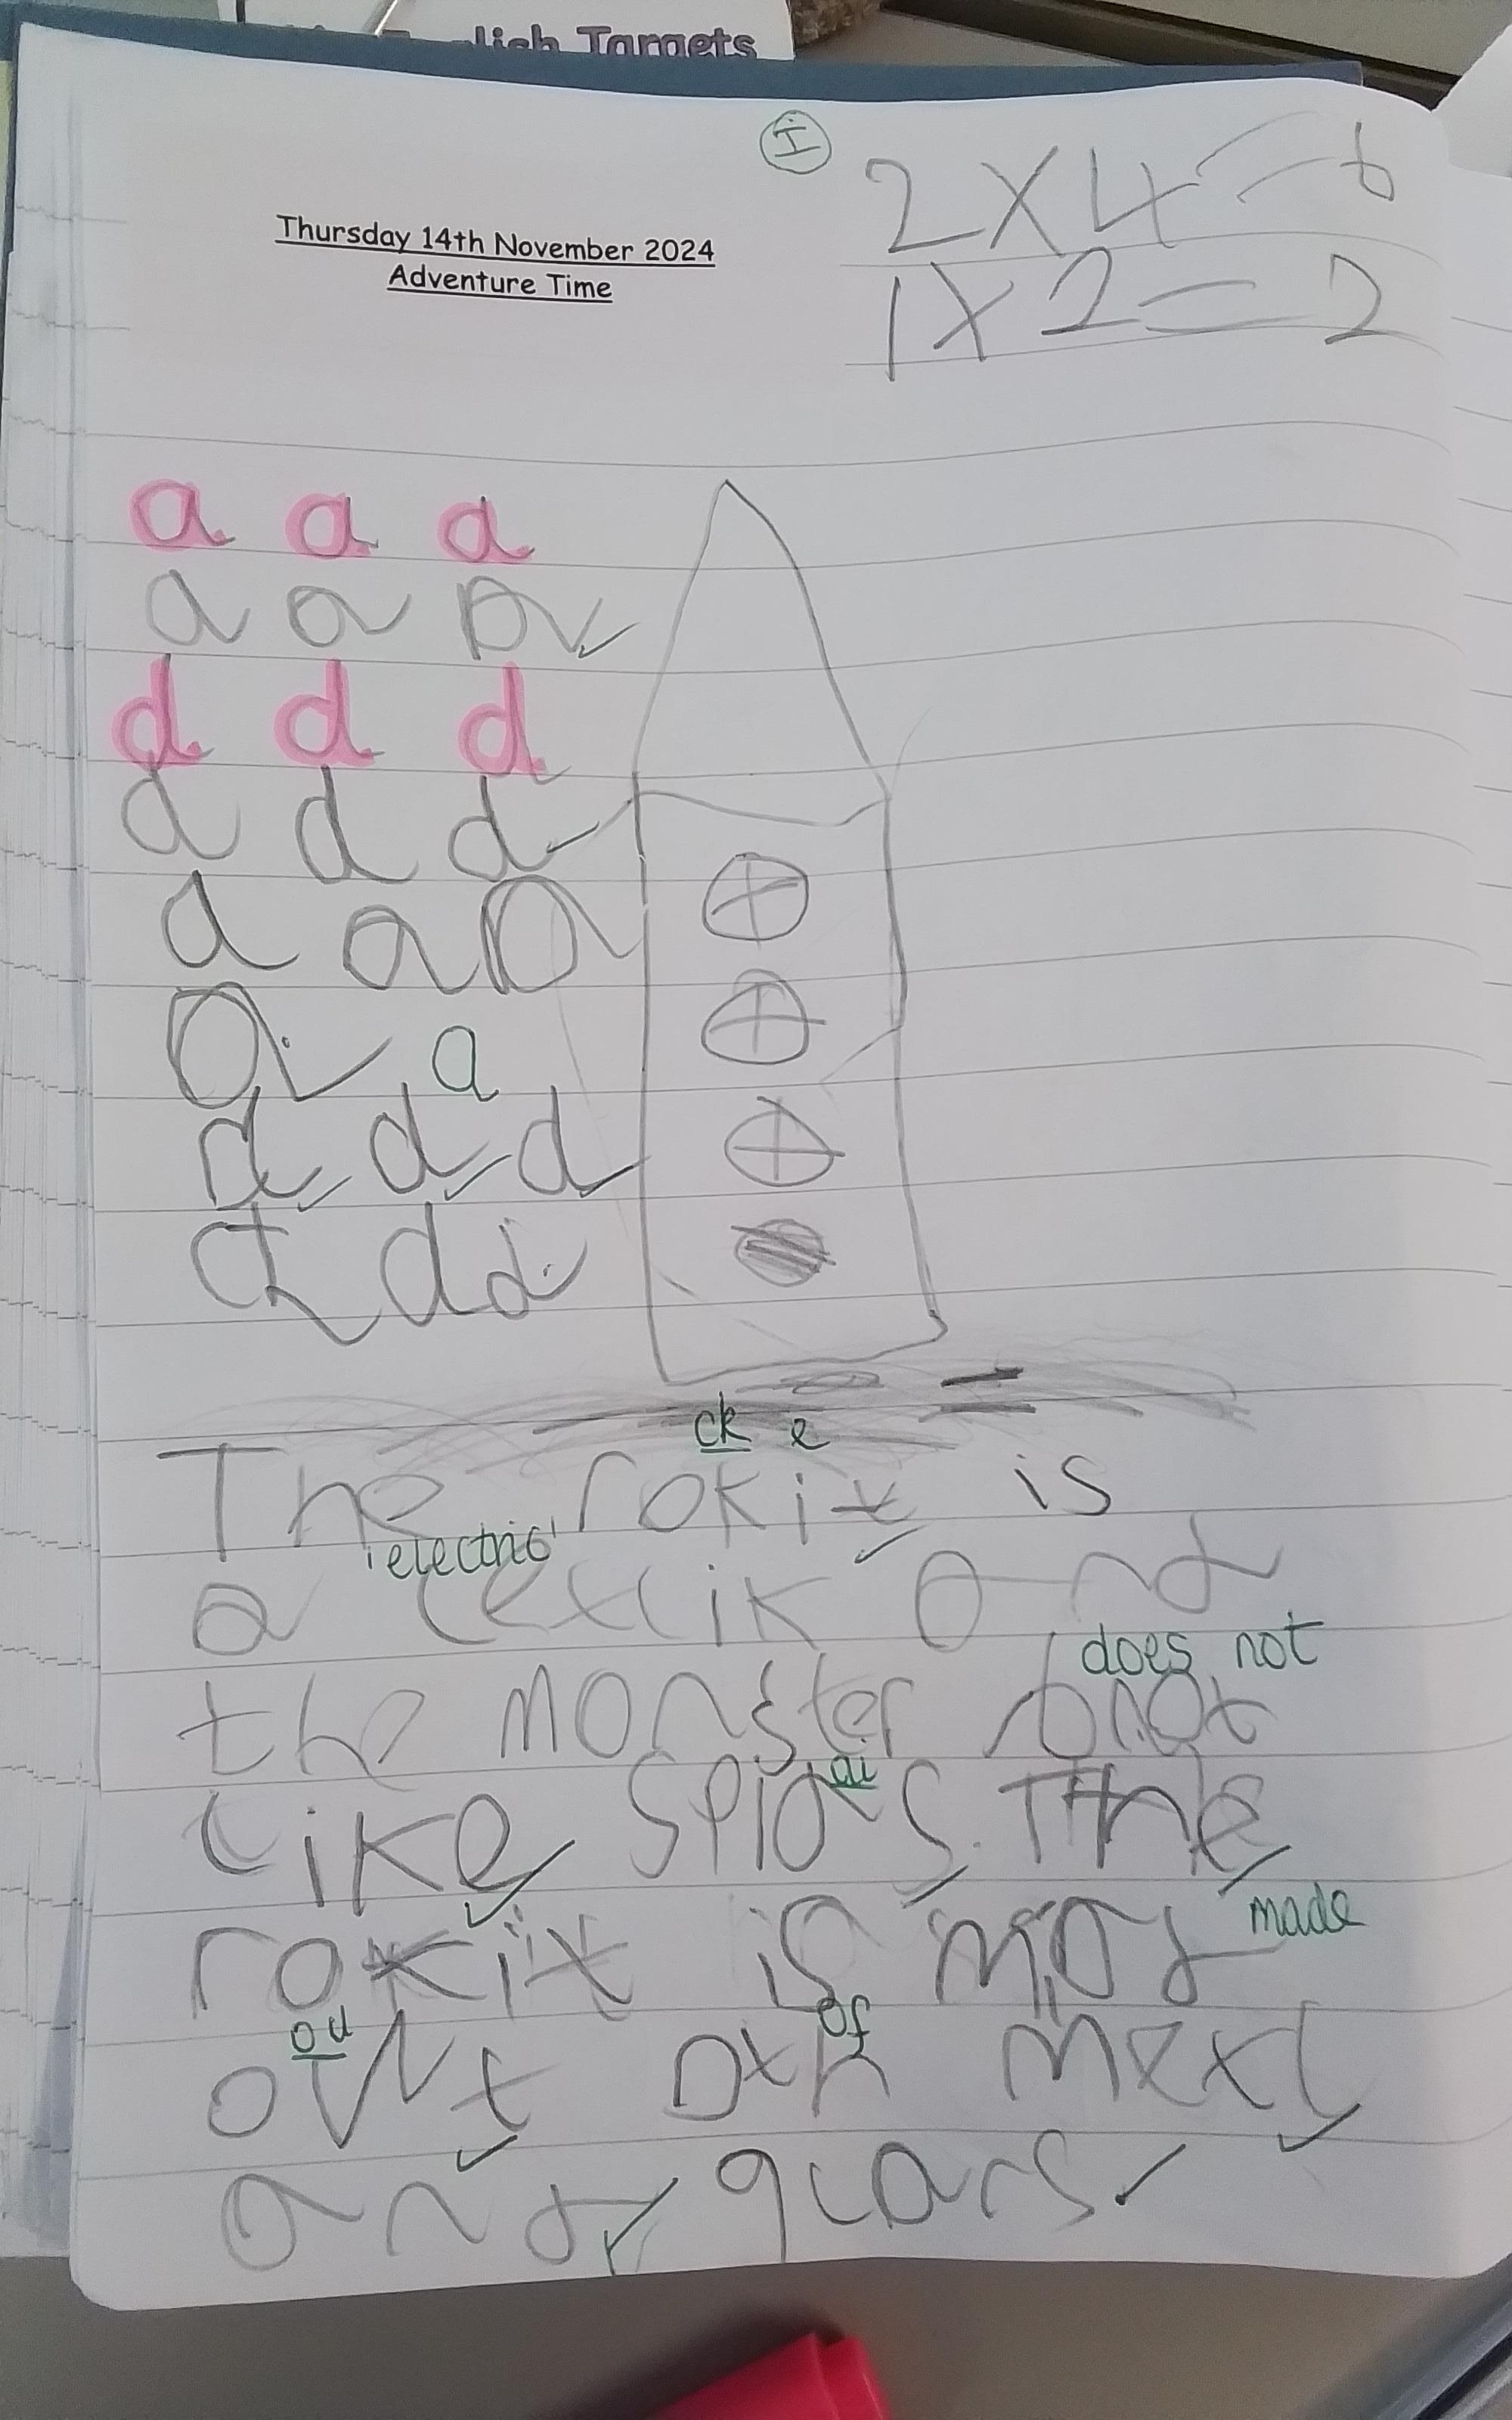 English Targets
I
2 x 4 = 6
1 x 2 = 2
Thursday 14th November 2024
Adventure Time
a a a
a a a
d d d
d d d
a a a
a a
d d d
d d d
ck e
The rokit is
electric
a lexlik and
does not
the monster not
ai
like spias. The
made
rokit is mad
ou of
owt mexl
and glars.